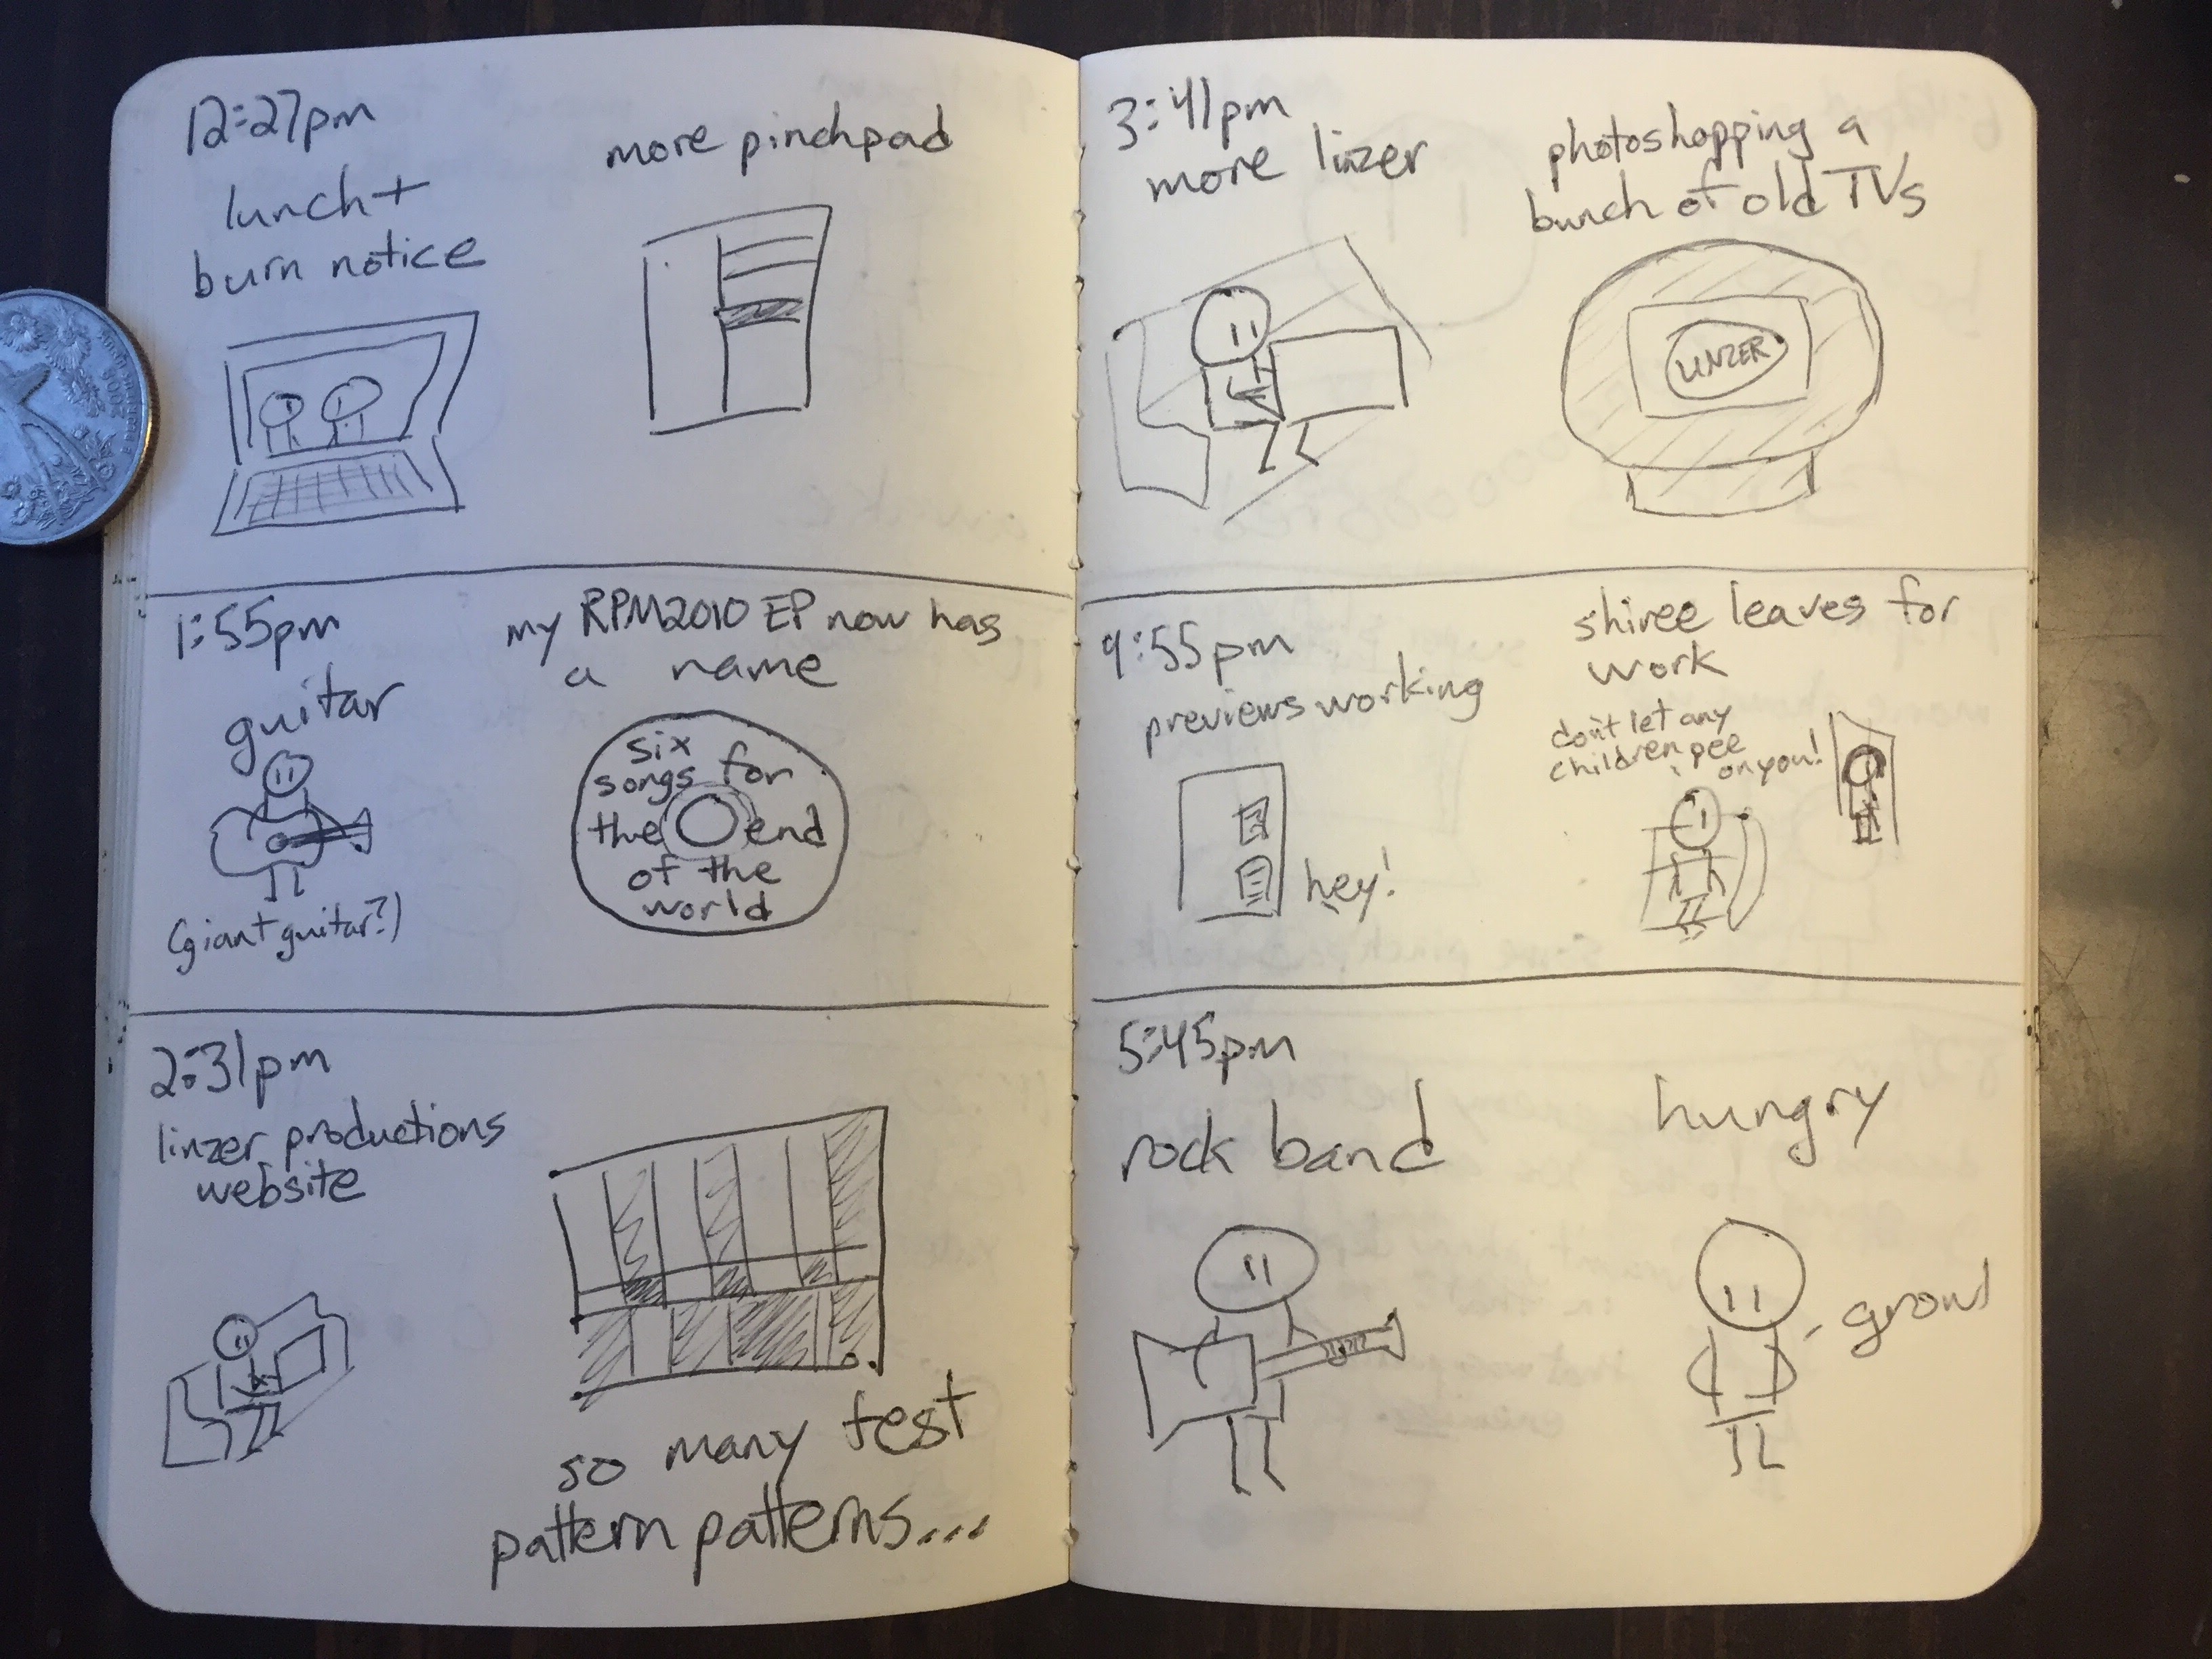 12:27pm
lunch +
burn notice
more pinchpad
1:55pm
guitar
(giant guitar?)
my RPM2010 EP now has
a name
six
songs for
the end
of the
world
2:31pm
linzer productions
website
so many test
pattern patterns...
3:41pm
more linzer
photoshopping a
bunch of old TVs
LINZER
4:55pm
previews working
hey!
shiree leaves for
work
don't let any
children pee
on you!
5:45pm
rock band
hungry
growl